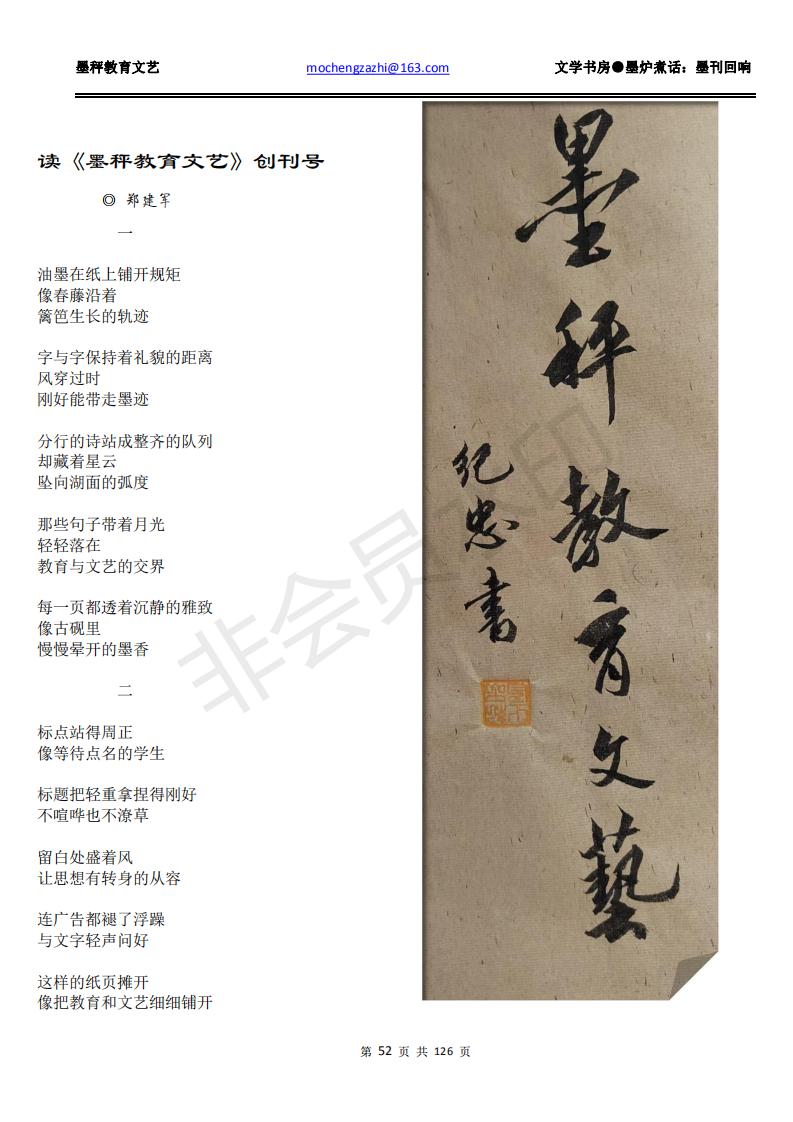 墨秤教育文艺 mochengzazhi@163.com 文学书房●墨炉煮话：墨刊回响
读《墨秤教育文艺》创刊号
◎ 郑建军
一
油墨在纸上铺开规矩
像春藤沿着
篱笆生长的轨迹
字与字保持着礼貌的距离
风穿过时
刚好能带走墨迹
分行的诗站成整齐的队列
却藏着星云
坠向湖面的弧度
那些句子带着月光
轻轻落在
教育与文艺的交界
每一页都透着沉静的雅致
像古砚里
慢慢晕开的墨香
二
标点站得周正
像等待点名的学生
标题把轻重拿捏得刚好
不喧哗也不潦草
留白处盛着风
让思想有转身的从容
连广告都褪了浮躁
与文字轻声问好
这样的纸页摊开
像把教育和文艺细细铺开
墨秤教育文藝
纪忠书
非会员水印
第 52 页 共 126 页